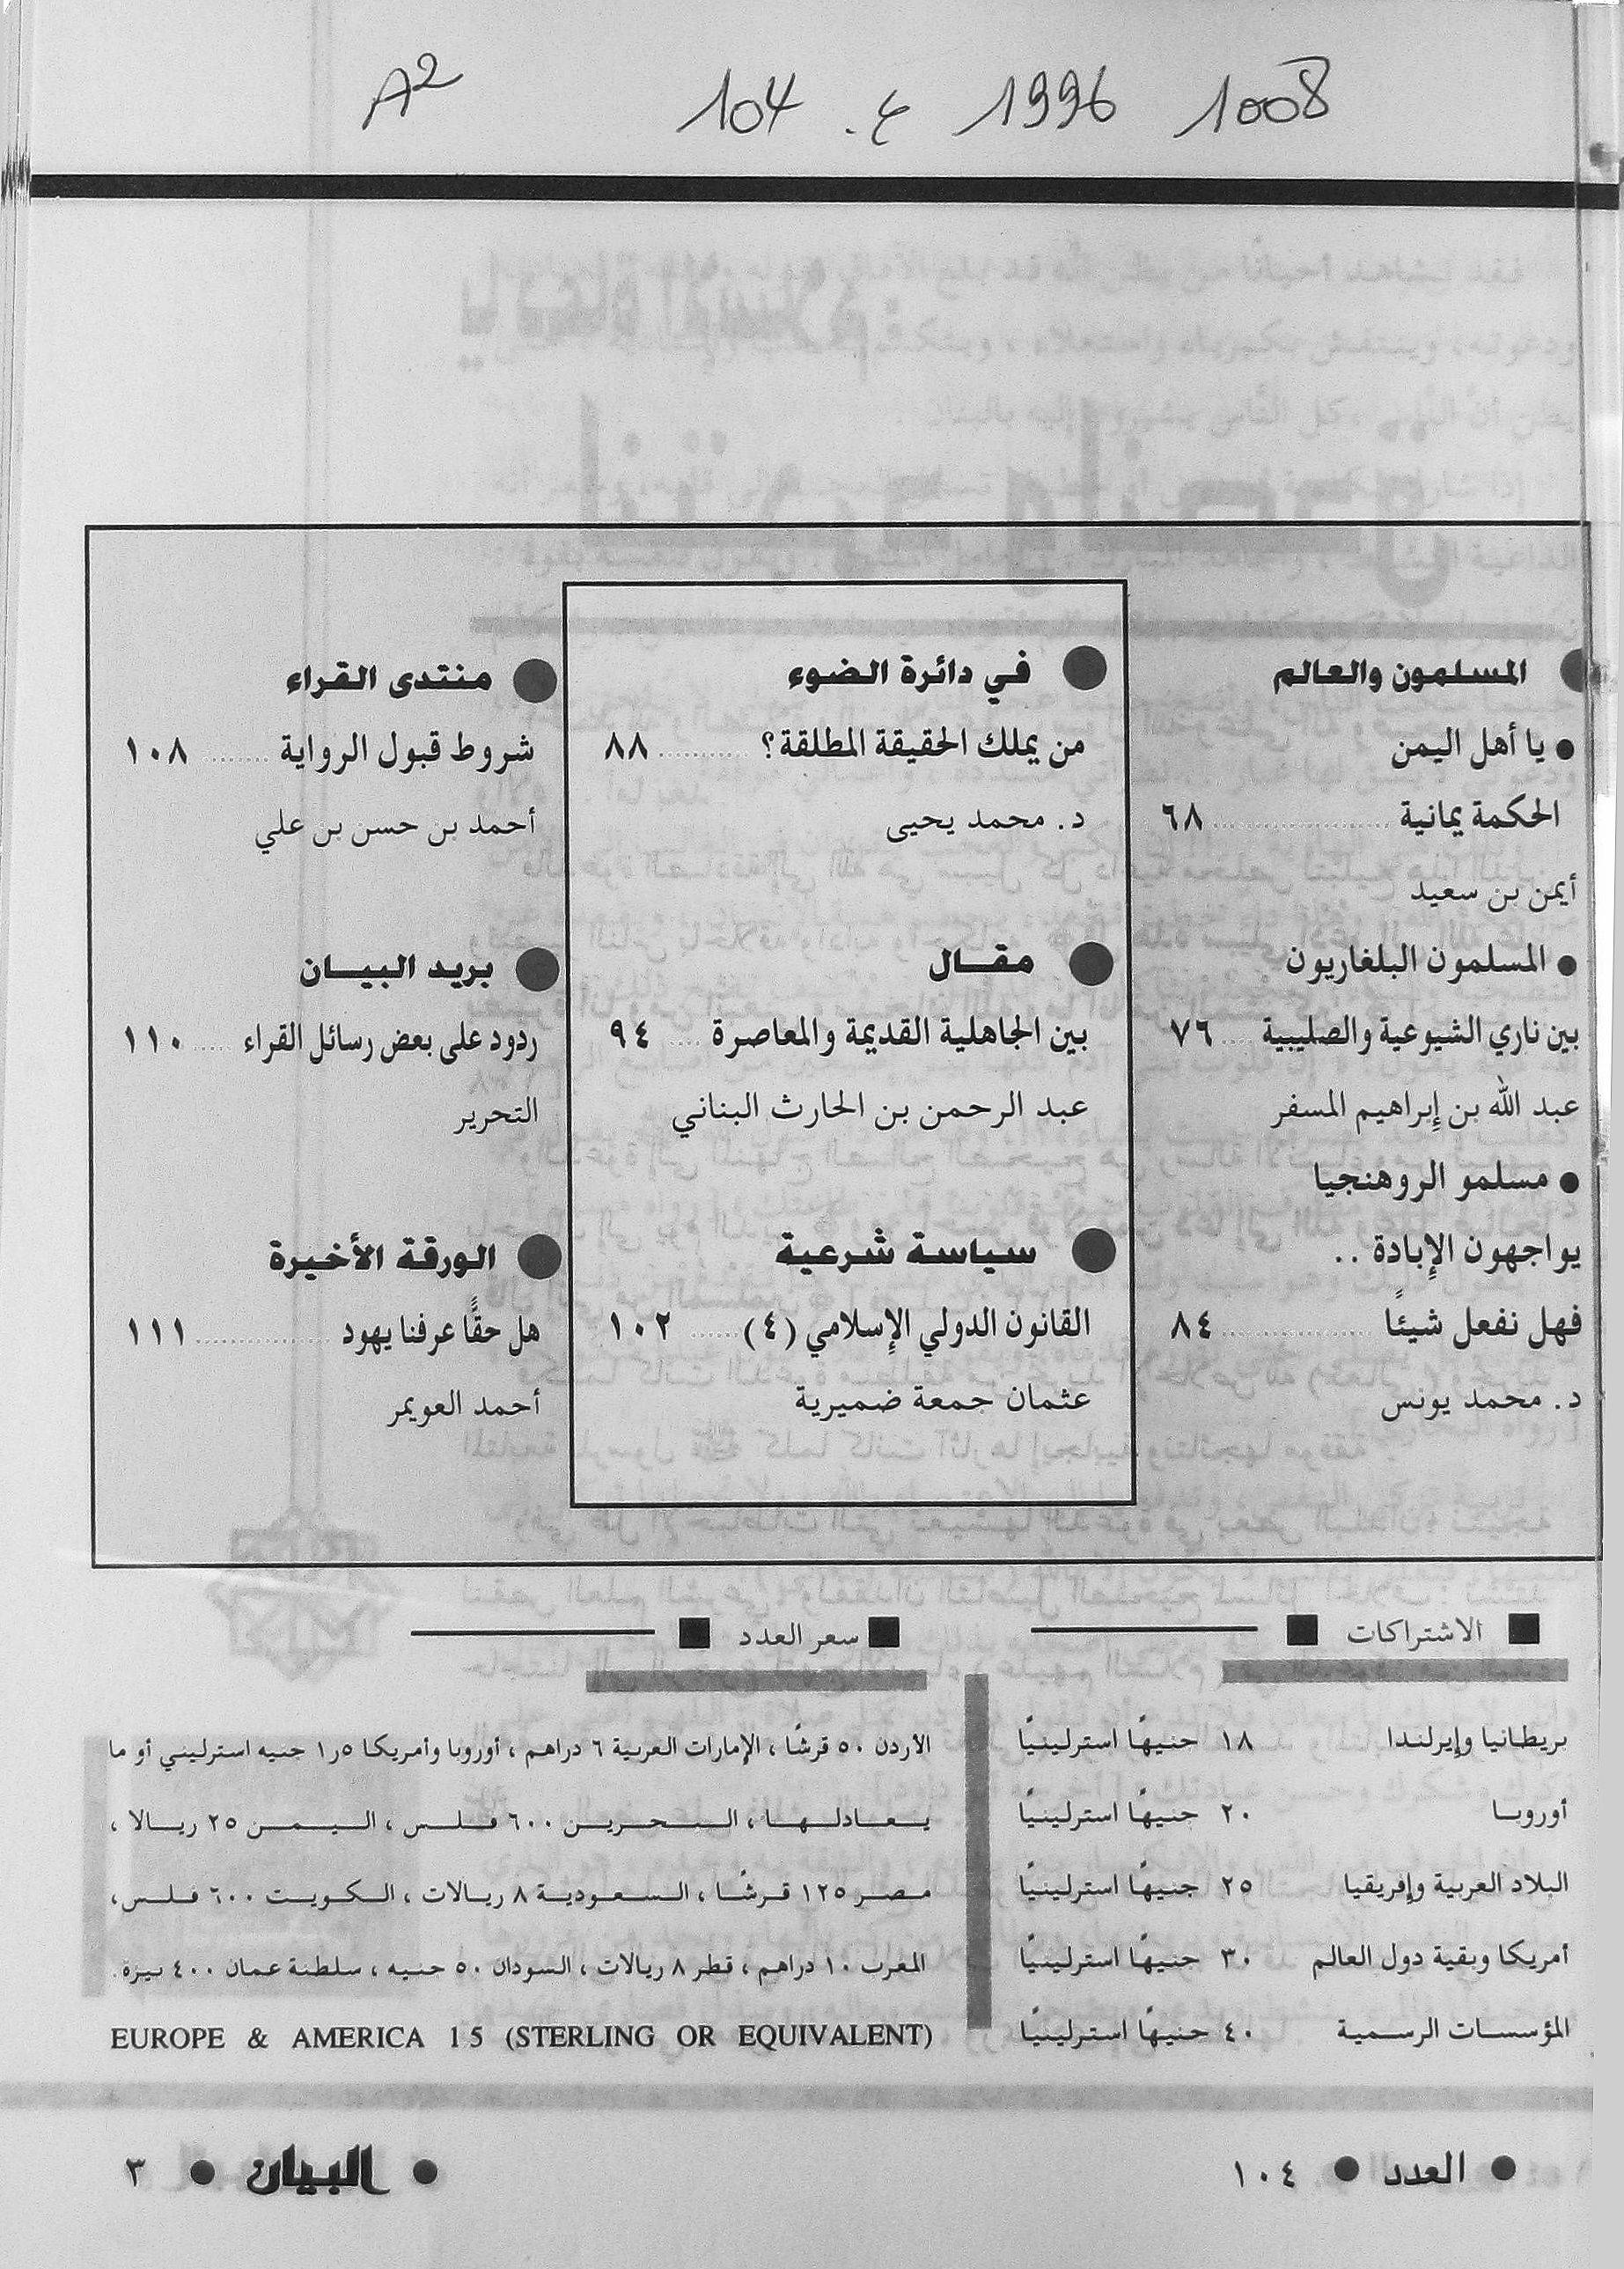 A2 104 ع. 1996 1008
المسلمون والعالم
● يا أهل اليمن
الحكمة يمانية ........ ٦٨
أيمن بن سعيد
● المسلمون البلغاريون
بين ناري الشيوعية والصليبية .... ٧٦
عبد الله بن إبراهيم المسفر
● مسلمو الروهنجيا
يواجهون الإبادة ..
فهل نفعل شيئًا ........ ٨٤
د. محمد يونس
في دائرة الضوء
من يملك الحقيقة المطلقة؟ ........ ٨٨
د. محمد يحيى
مقـال
بين الجاهلية القديمة والمعاصرة .... ٩٤
عبد الرحمن بن الحارث البناني
سياسة شرعية
القانون الدولي الإسلامي (٤) ...... ١٠٢
عثمان جمعة ضميرية
منتدى القراء
شروط قبول الرواية ....... ١٠٨
أحمد بن حسن بن علي
بريد البيـان
ردود على بعض رسائل القراء ..... ١١٠
التحرير
الورقة الأخيرة
هل حقًّا عرفنا يهود ........ ١١١
أحمد العويمر
■ الاشتراكات ■
بريطانيا وإيرلندا ١٨ جنيهًا استرلينيًا
أوروبـا ٢٠ جنيهًا استرلينيًا
البلاد العربية وإفريقيا ٢٥ جنيهًا استرلينيًا
أمريكا وبقية دول العالم ٣٠ جنيهًا استرلينيًا
المؤسسات الرسمية ٤٠ جنيهًا استرلينيًا
■ سعر العدد ■
الأردن ٥٠ قرشًا ، الإمارات العربية ٦ دراهم ، أوروبا وأمريكا ١٫٥ جنيه استرليني أو ما
يعادلها ، البحرين ٦٠٠ فلس ، اليمن ٢٥ ريالا ،
مصر ١٢٥ قرشًا ، السعودية ٨ ريالات ، الكويت ٦٠٠ فلس ،
المغرب ١٠ دراهم ، قطر ٨ ريالات ، السودان ٥٠ جنيه ، سلطنة عمان ٤٠٠ بيزة .
EUROPE & AMERICA 15 (STERLING OR EQUIVALENT)
● العدد ● ١٠٤
● البيان ● ٣